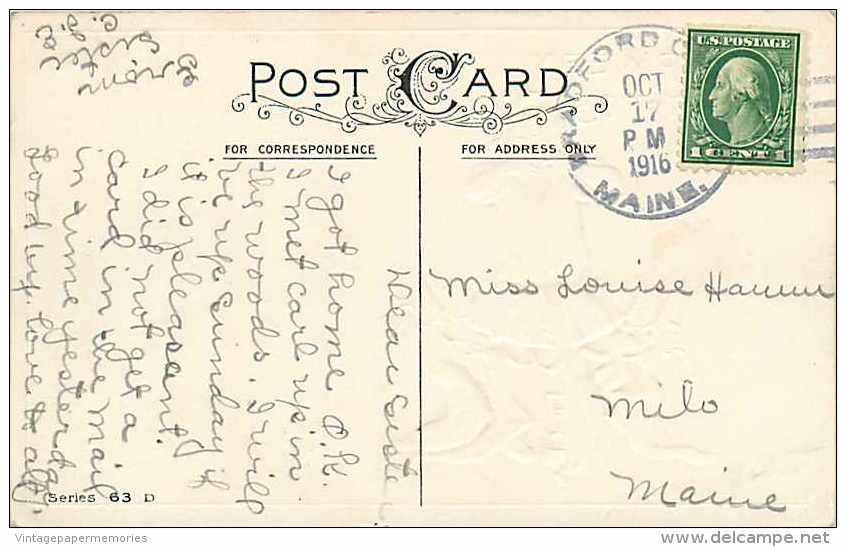 POST CARD
FOR CORRESPONDENCE
FOR ADDRESS ONLY
BRADFORD
OCT
17
P M
1916
MAINE.
U.S. POSTAGE
1 CENT 1
Miss Louise Hamm
Milo
Maine
Dear Siste
I got home O.K.
I met Carl up in
the woods. I will
be up Sunday if
it is pleasant.
I did not get a
card in the mail
in time yesterda
Good by. love to all.
from
sister
Series 63 D
Vintagepapermemories
delcampe.net